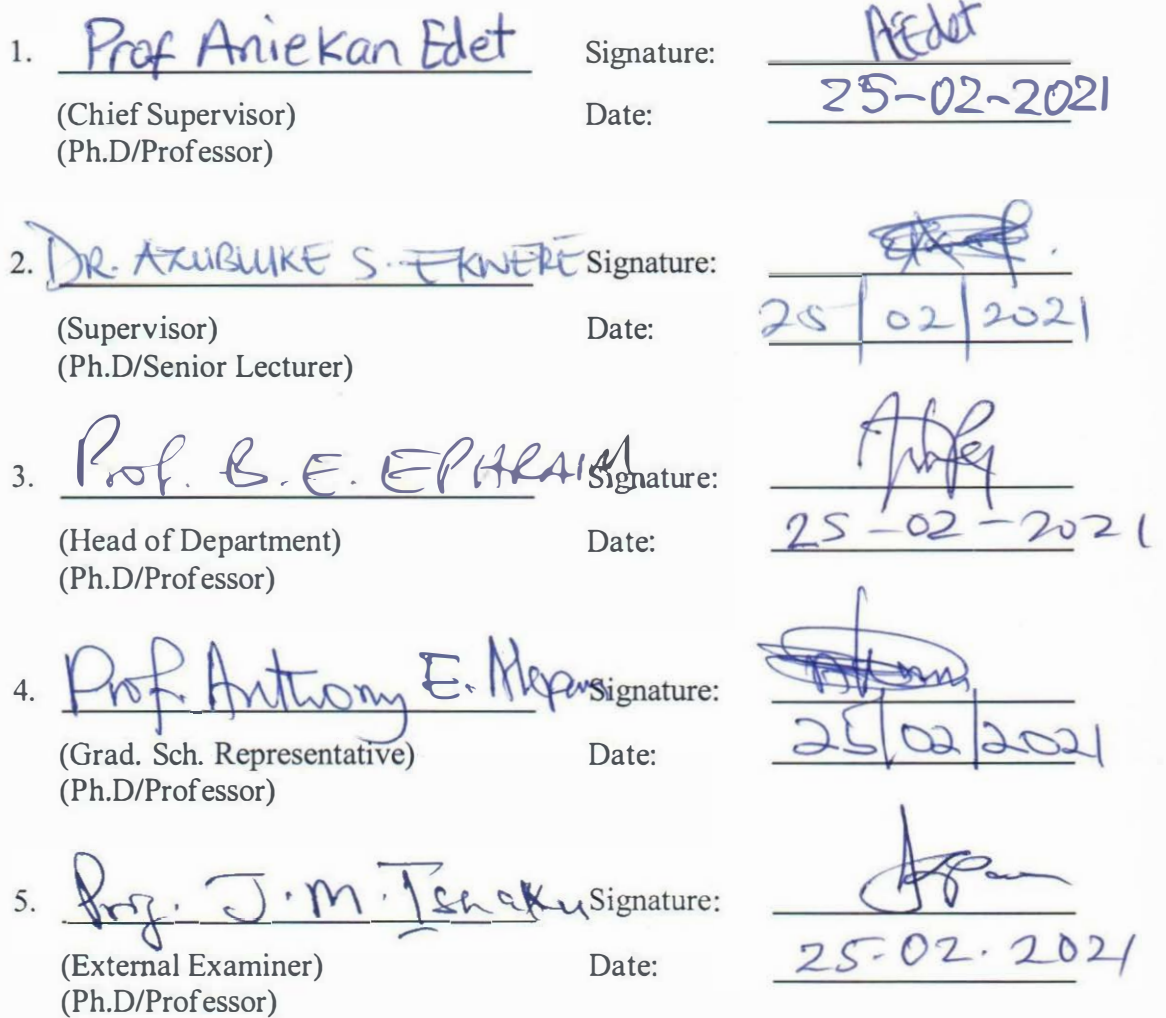 1. Prof Aniekan Edet Signature: AEdet
(Chief Supervisor) Date: 25-02-2021
(Ph.D/Professor)
2. DR. AZUBUIKE S. EKWERE Signature:
(Supervisor) Date: 25|02|2021
(Ph.D/Senior Lecturer)
3. Prof. B. E. EPHRAIM Signature:
(Head of Department) Date: 25-02-2021
(Ph.D/Professor)
4. Prof. Anthony E. Signature:
(Grad. Sch. Representative) Date: 25|02|2021
(Ph.D/Professor)
5. Prof. J. M. Ishaku Signature:
(External Examiner) Date: 25-02.2021
(Ph.D/Professor)